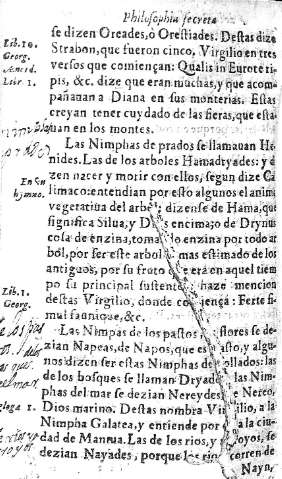 Philosophia secreta
se dizen Oreades, ò Orestiades. Destas dize
Strabon, que fueron cinco, Virgilio en tres
versos que comiençan: Qualis in Eurote ri-
pis, &c. dize que eran muchas, y que acom-
pañauan a Diana en sus monterias. Estas
creyan tener cuydado de las fieras, que esta-
uan en los montes.
Las Nimphas de prados se llamauan He-
nides. Las de los arboles Hamadryades: y d
zen nacer y morir con ellos, segun dize Ca
limaco: entendian por esto algunos el anima
vegetatiua del arbol; dizense de Hama, que
significa Silua, y Di
cosa de enzina, toma enzina por todo ar
bol, por ser este arbol mas estimado de los
antiguos, por su fruto era en aquel tiem
po su principal sustento: haze mencion
destas Virgilio, donde comiença: Ferte si-
mul faunique, &c.
Las Nimpas de los pastos flores se de-
zian Napeas, de Napos, que es pasto, y algu-
nos dizen ser estas Nimphas de collados: las
de los bosques se llaman Dryadas: las Nim-
phas del mar se dezian Nereydes, de Nereo,
Dios marino. Destas nombra Virgilio, a la
Nimpha Galatea, y entiende por a la ciu-
dad de Mantua. Las de los rios, y arroyos, se
dezian Nayades, porque los rios corren de
Nayn,
Lib. 10.
Georg.
Æneid.
Libr. 1.
prados
En su
hymno.
Lib. 1.
Georg.
Egloga 1.